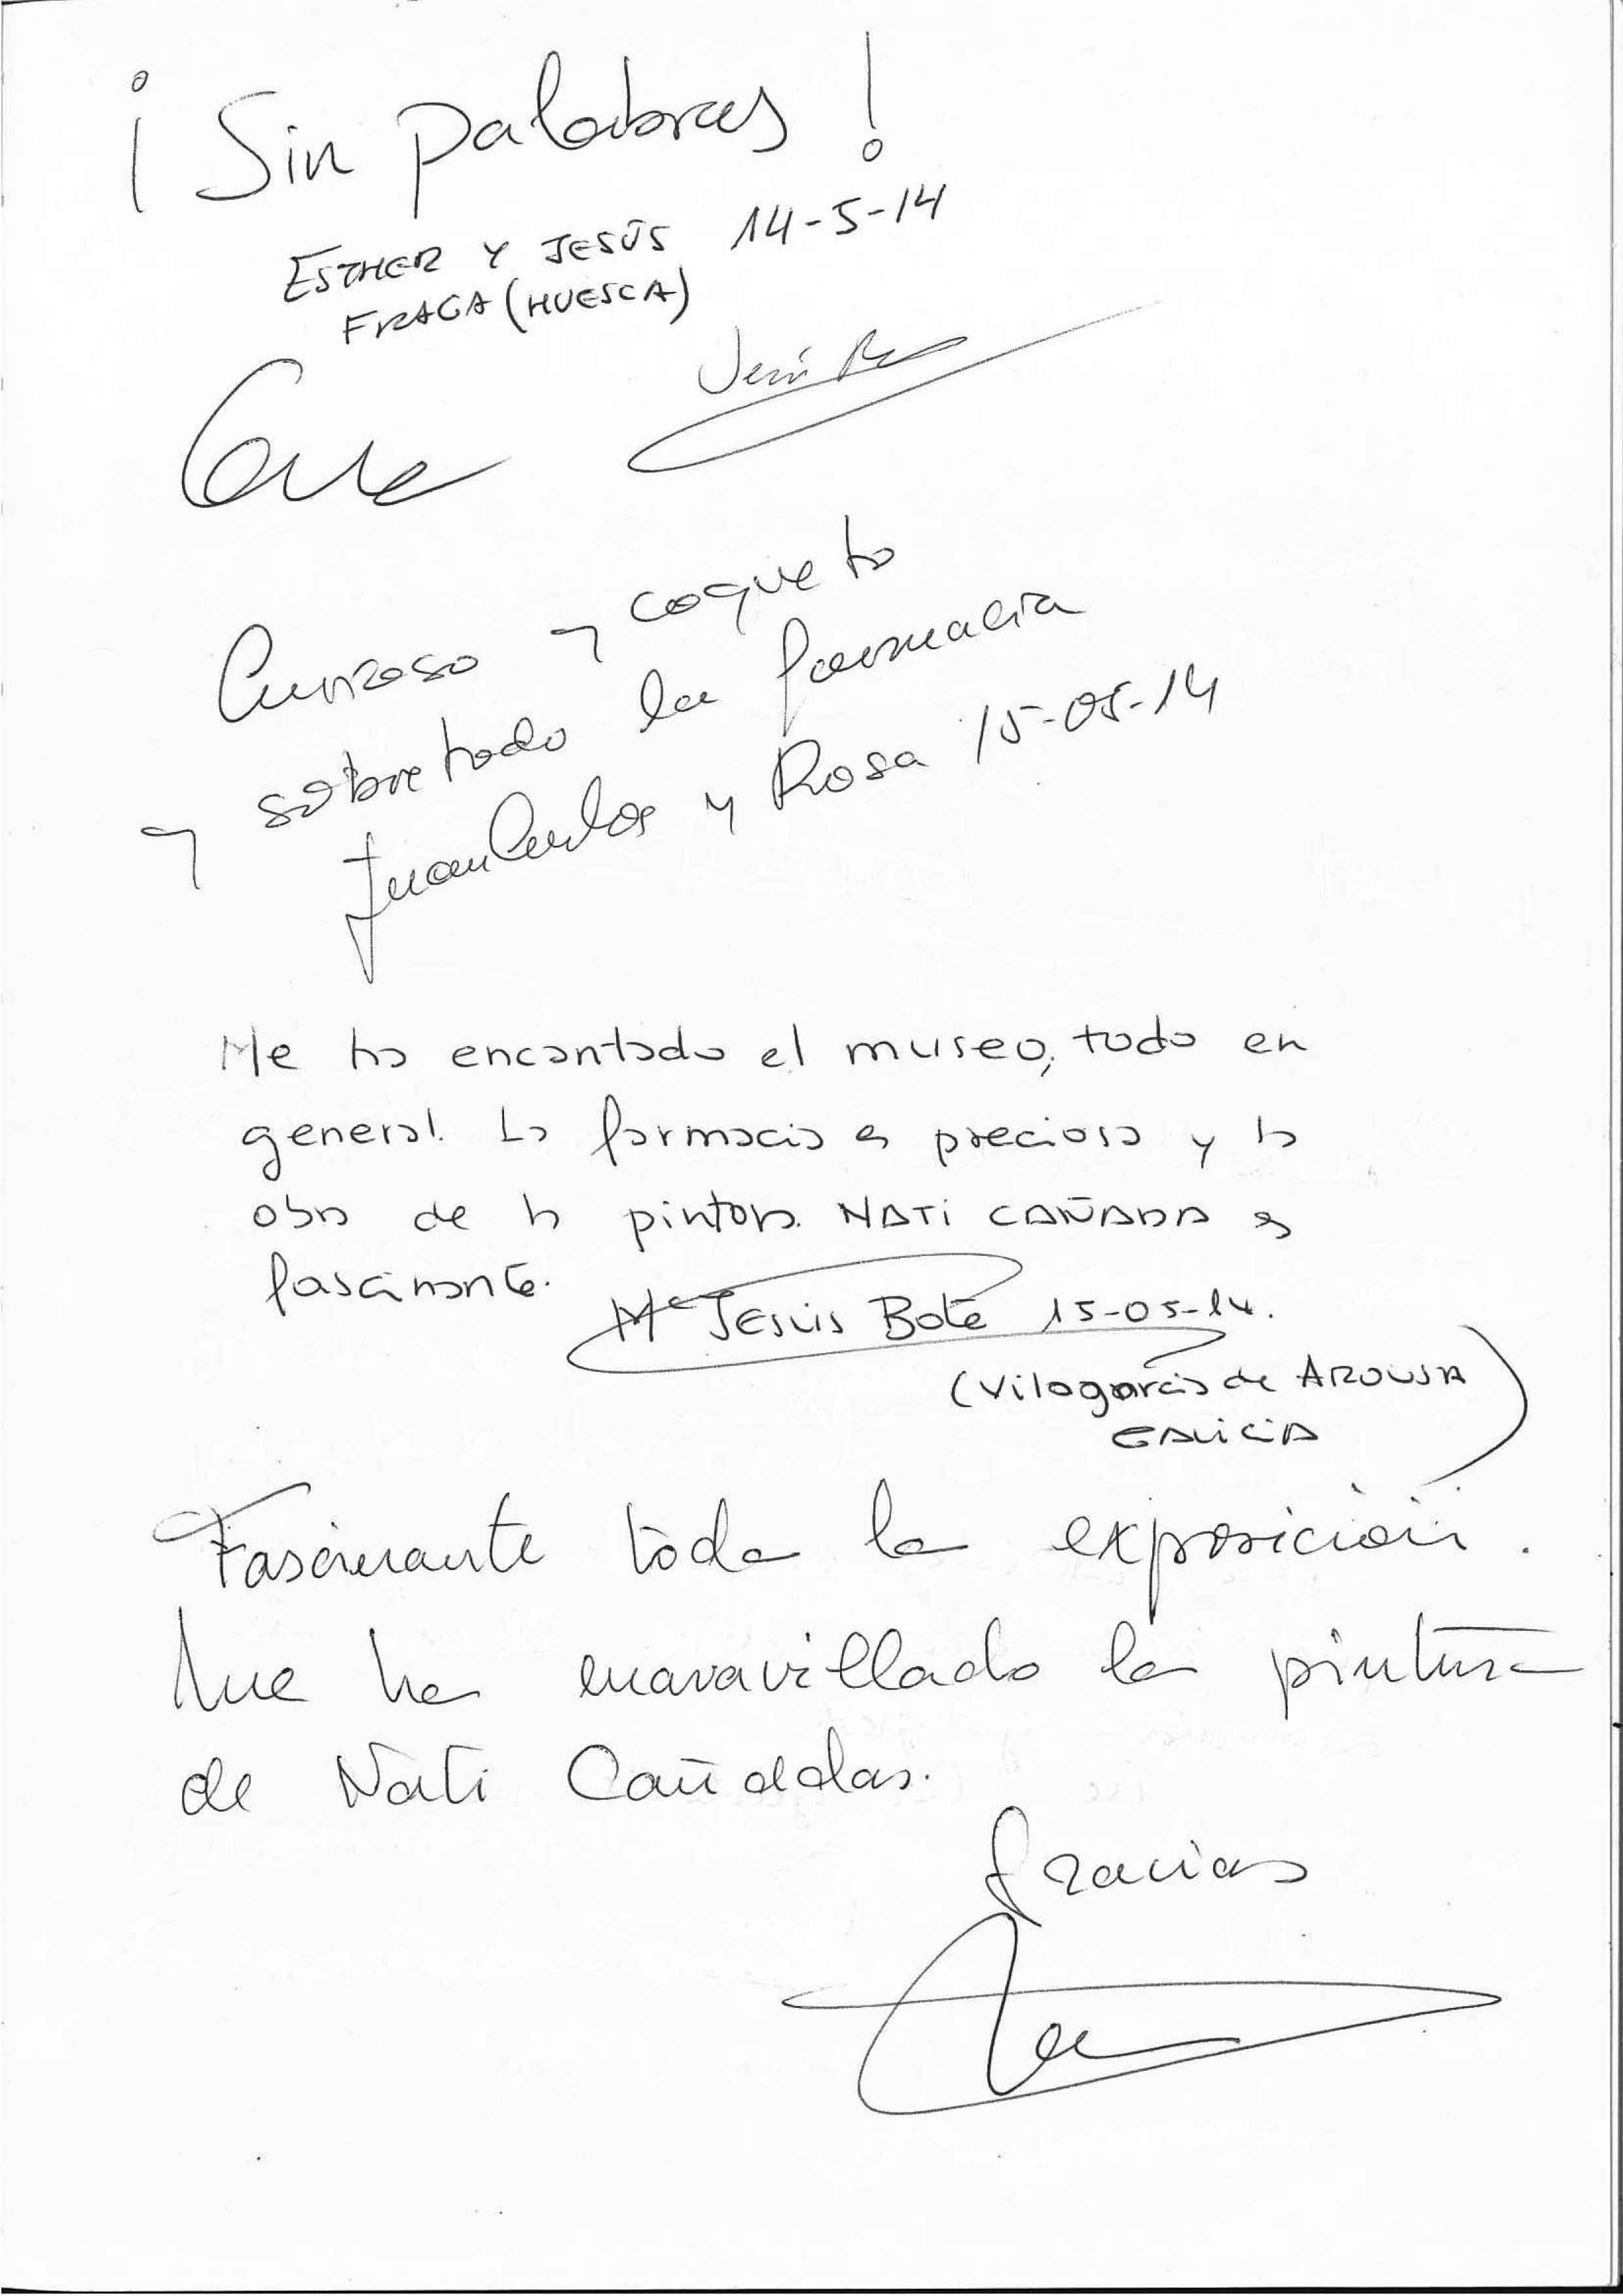 ¡Sin palabras!
ESTHER Y JESÚS 14-5-14
FRAGA (HUESCA)
Curioso y coqueto
y sobre todo la farmacia
Juan Carlos y Rosa 15-05-14
Me ha encantado el museo, todo en
general. La farmacia es preciosa y la
obra de la pintora NATI CAÑADA es
fascinante.
Mª JESÚS Bote 15-05-14.
(Vilagarcía de AROUSA
GALICIA)
Fascinante toda la exposición.
Me ha maravillado la pintura
de Nati Cañadas.
Gracias